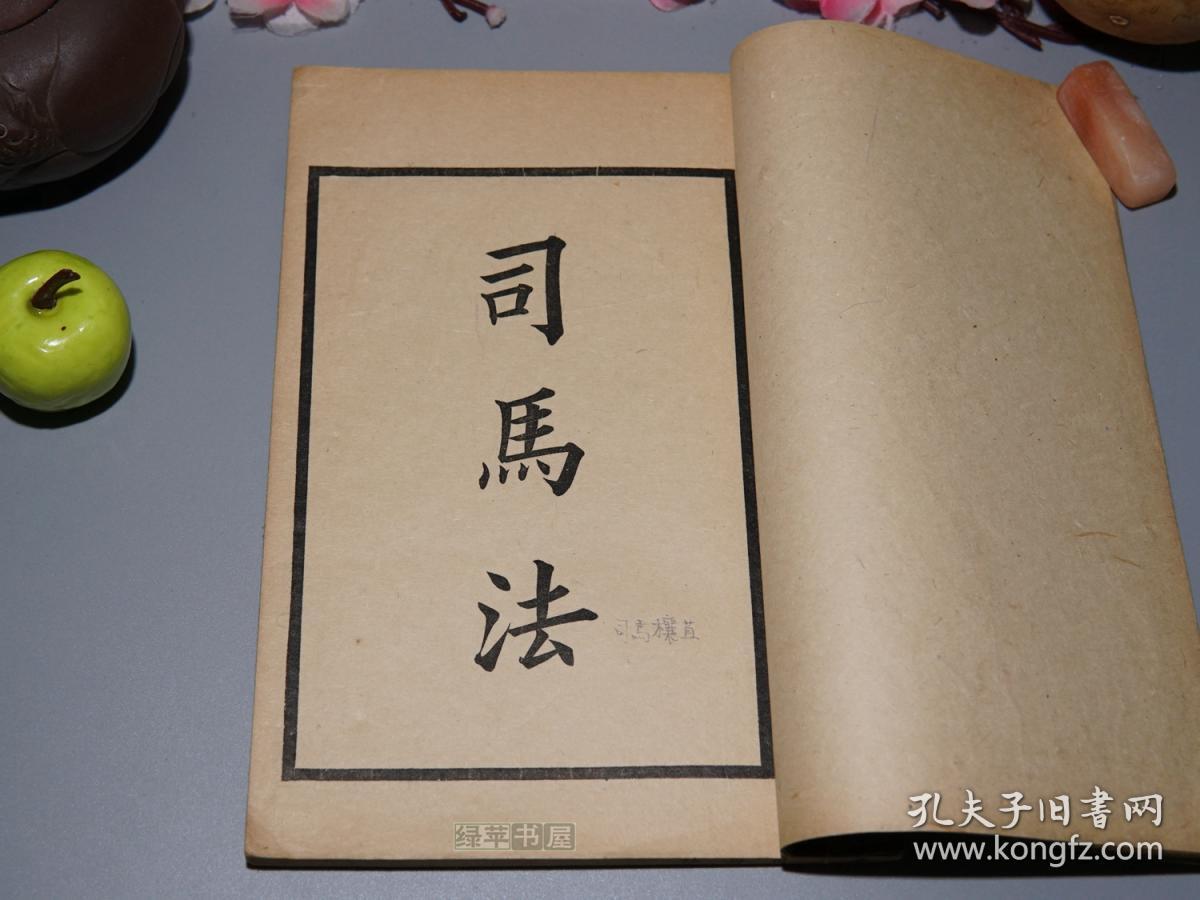 司馬法
司馬穰苴
绿苹书屋
孔夫子旧书网
www.kongfz.com